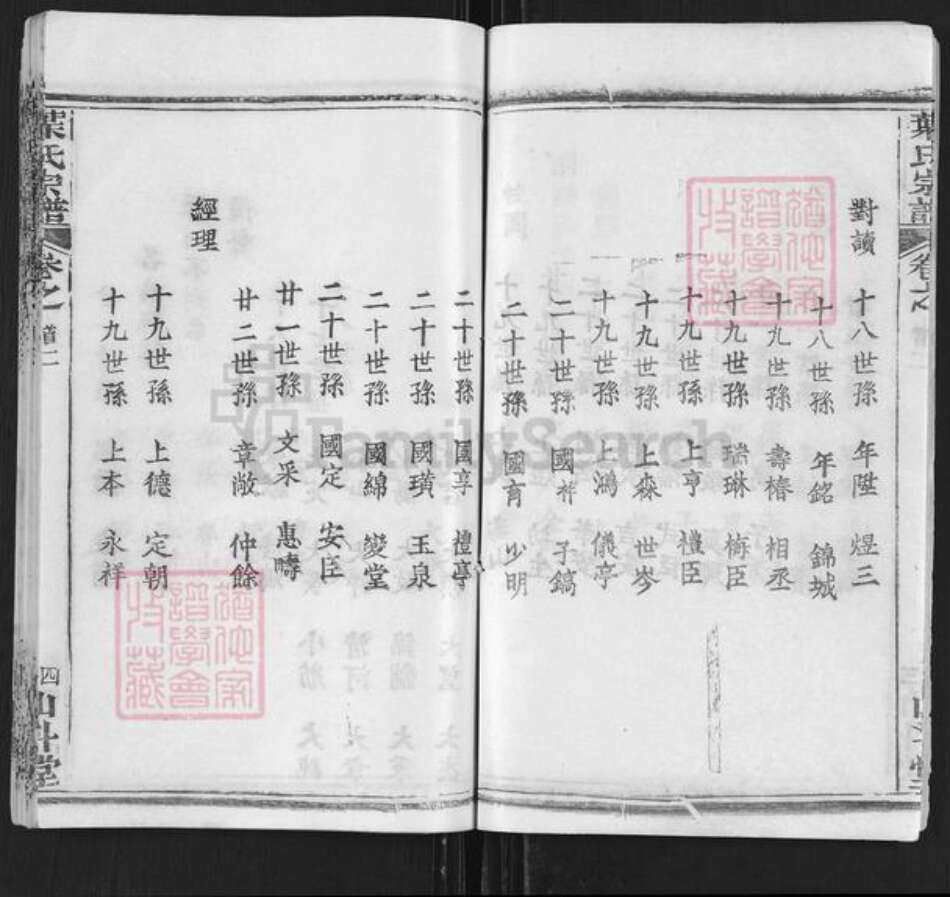 葉氏宗譜
對讀
十八世孫 年陞 煜三
十八世孫 年銘 錦城
十九世孫 壽椿 相丞
十九世孫 瑞琳 梅臣
十九世孫 上亨 禮臣
十九世孫 上森 世岑
十九世孫 上鴻 儀亭
二十世孫 國祚 子鎬
二十世孫 國育 少明
二十世孫 國享 禮亭
二十世孫 國璜 玉泉
二十世孫 國綿 燮堂
二十世孫 國定 安臣
廿一世孫 文采 惠疇
廿二世孫 章敞 仲餘
經理
十九世孫 上德 定朝
十九世孫 上本 永祥
葉氏宗譜 卷之首二
四
FamilySearch